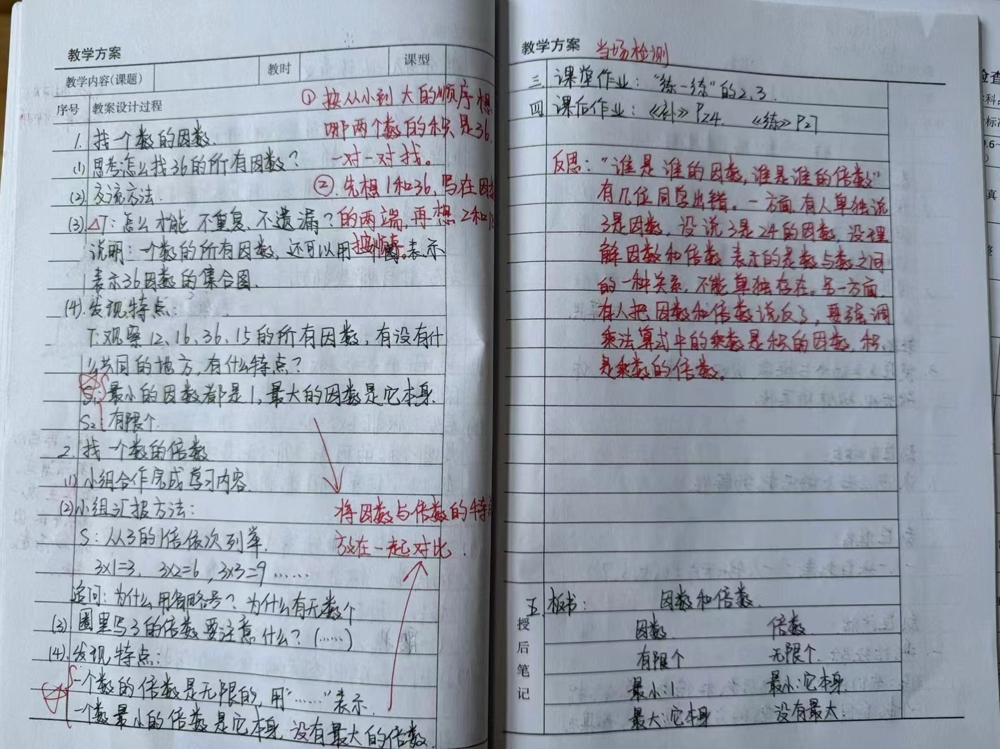 教学方案
教学内容(课题)
教时
课型
序号
教案设计过程
①按从小到大的顺序想
哪两个数的积是36.
一对一对找。
②.先想1和36,写在因
的两端,再想2和
1. 找一个数的因数.
(1) 思考怎么找36的所有因数?
(2) 交流方法.
(3) △T:怎么才能不重复、不遗漏?
说明:一个数的所有因数,还可以用 图表示
表示36因数的集合图.
(4) 发现特点:
T:观察12、16、36、15的所有因数,有没有什
么共同的地方,有什么特点?
S₁ 最小的因数都是1,最大的因数是它本身.
S₂ 有限个.
2. 找一个数的倍数
(1) 小组合作完成学习内容
(2) 小组汇报方法:
将因数与倍数的特
放在一起对比.
S:从3的1倍依次列举.
3×1=3, 3×2=6, 3×3=9……
追问:为什么用省略号?为什么有无数个
(3) 圈里写3的倍数要注意什么?(……)
(4) 发现特点:
一个数的倍数是无限的,用"……"表示.
一个数最小的倍数是它本身,没有最大的倍数.
教学方案
当场检测
三 课堂作业:"练一练"的2、3.
四 课后作业:《补》P24. 《练》P27
反思:"谁是谁的因数,谁是谁的倍数"
有几位同学出错。一方面有人单独说
3是因数,没说3是24的因数,没理
解因数和倍数表示的是数与数之间
的一种关系,不能单独存在。另一方面
有人把因数和倍数说反了,要强调
乘法算式中的乘数是积的因数,积
是乘数的倍数。
授后笔记
五. 板书: 因数和倍数.
因数 倍数
有限个 无限个
最小:1 最小:它本身
最大:它本身 没有最大.